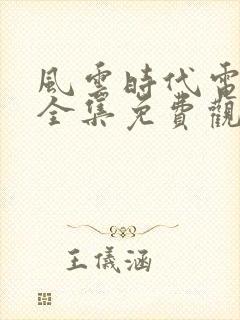 風雲時代電
全集免費觀
王儀涵